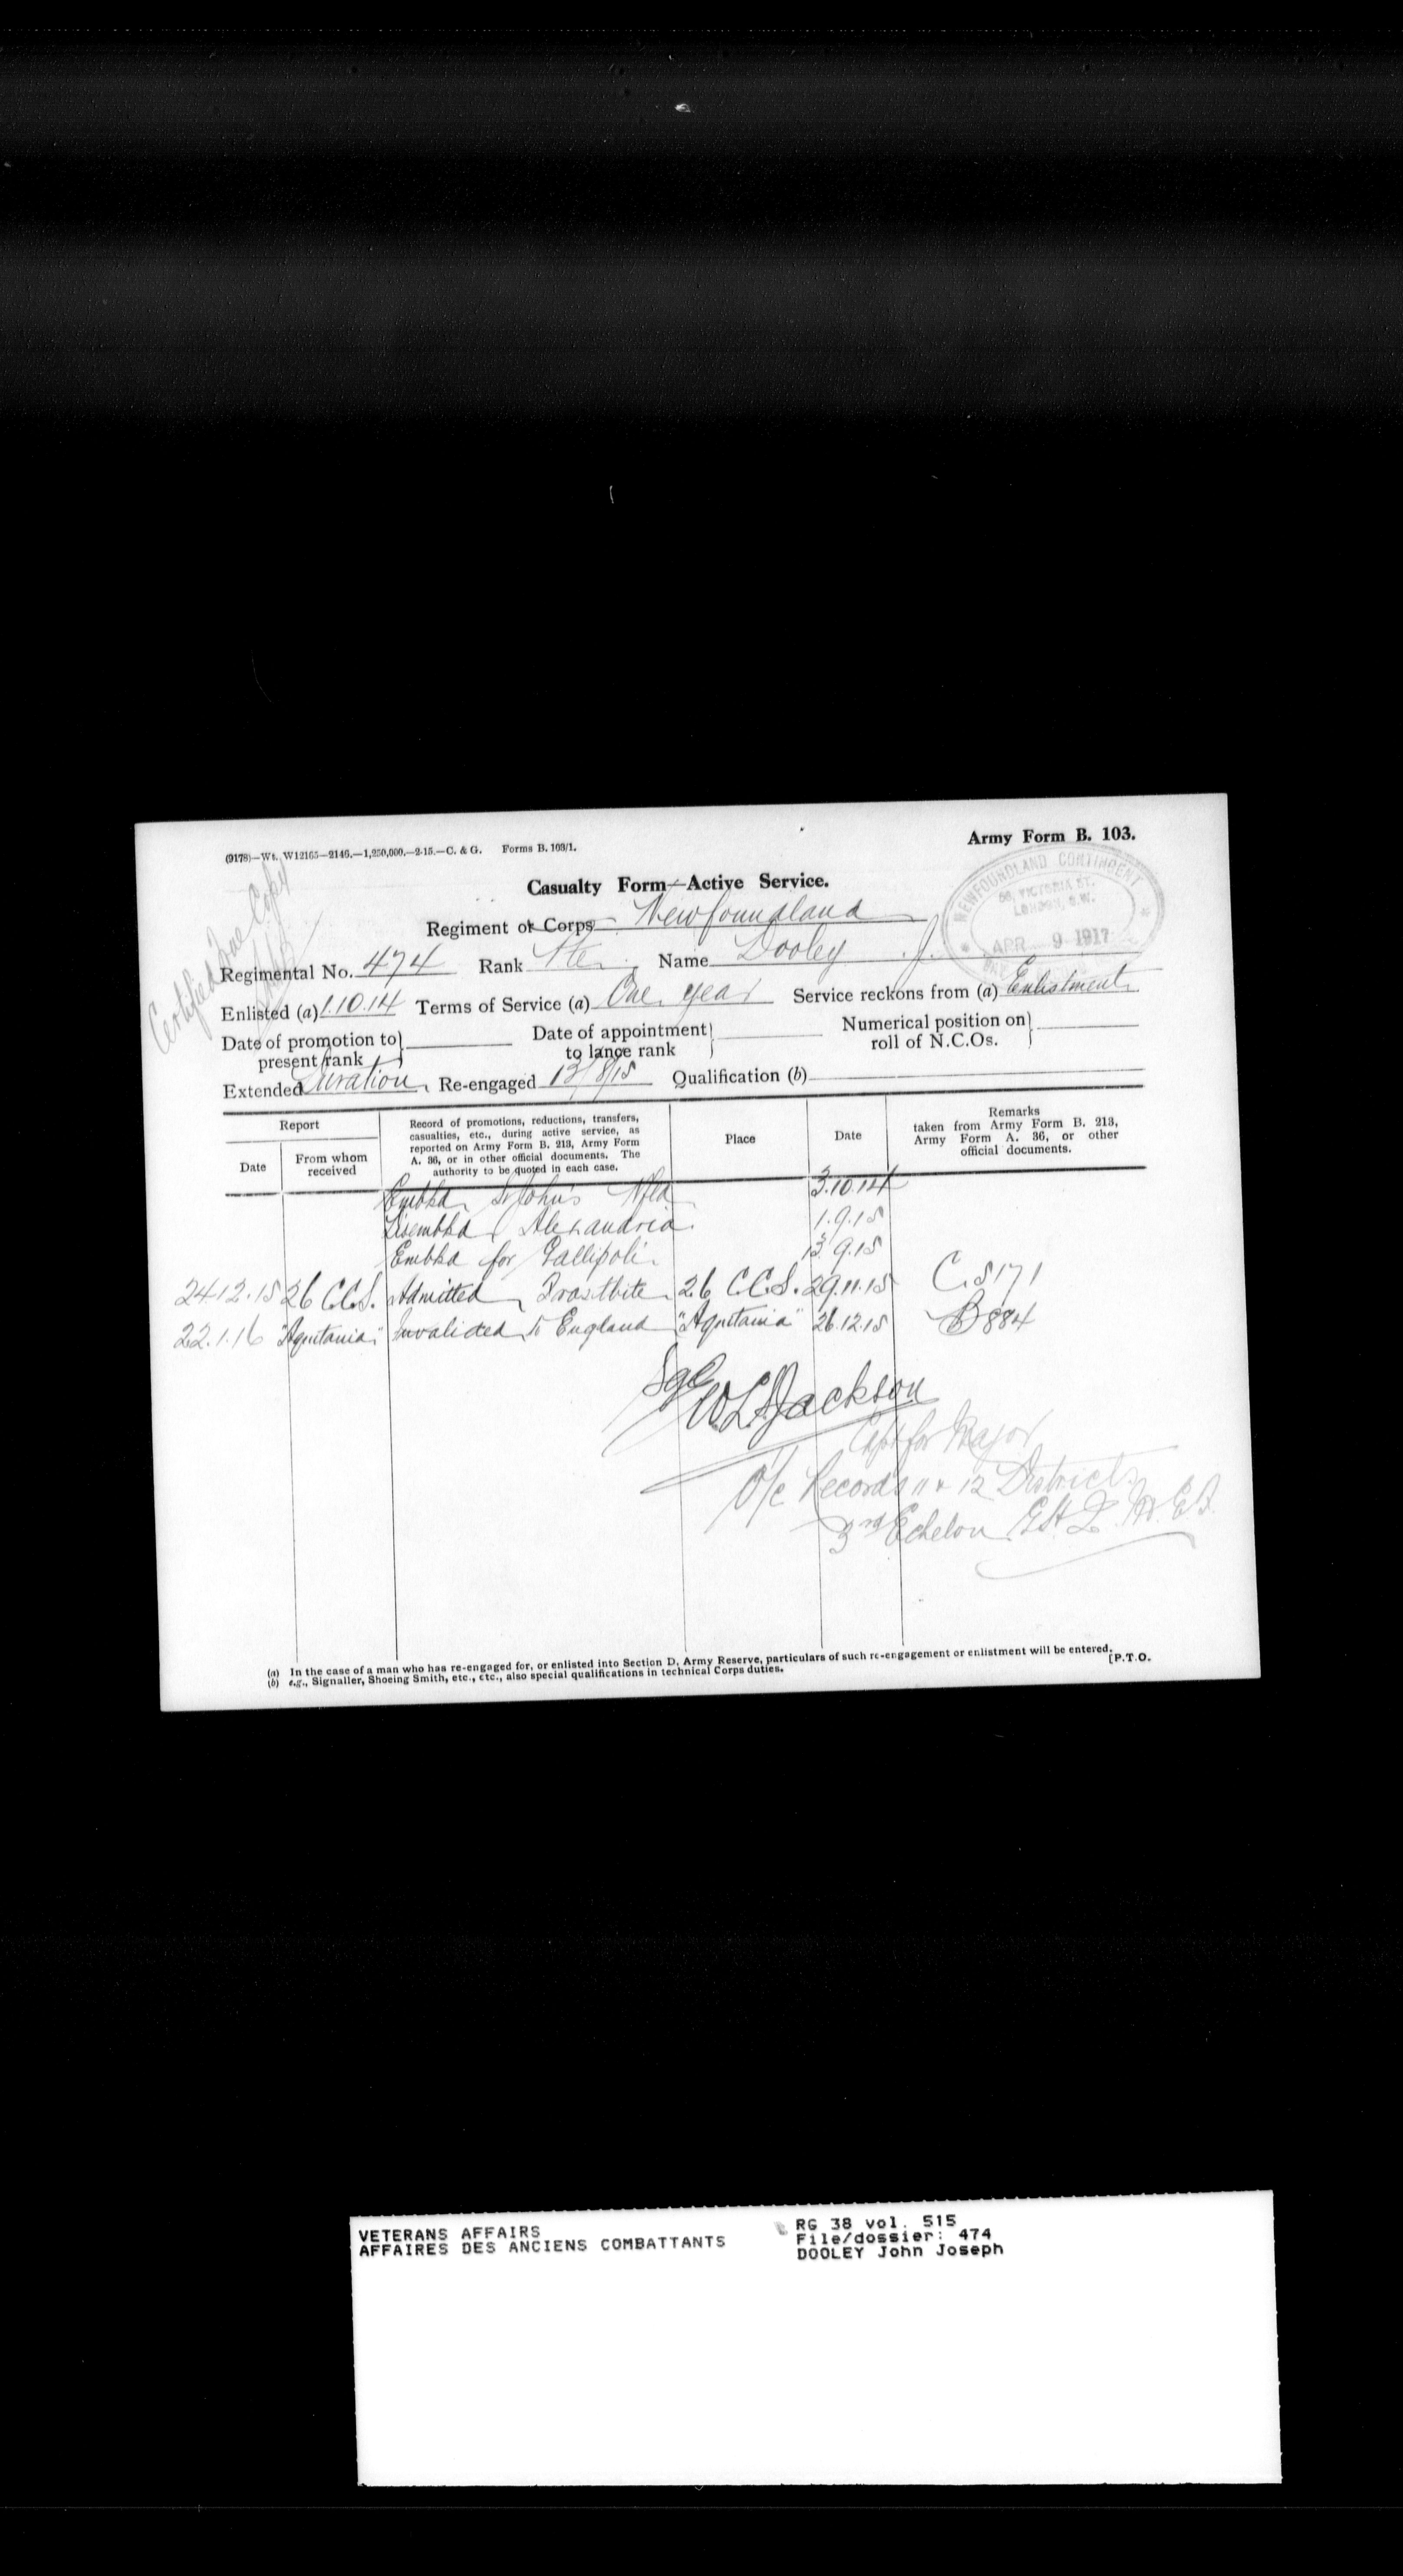 Army Form B. 103.
(9178)—Wt. W12165—2146.—1,250,000.—2-15.—C. & G. Forms B. 103/1.
Certified True Copy
NEWFOUNDLAND CONTINGENT
58, VICTORIA ST.
LONDON, S.W.
APR 9 1917
Casualty Form—Active Service.
Regiment or Corps Newfoundland
Regimental No. 474 Rank Pte. Name Dooley J.
Enlisted (a) 1.10.14 Terms of Service (a) One year Service reckons from (a) Enlistment
Date of promotion to present rank
Date of appointment to lance rank
Numerical position on roll of N.C.Os.
Extended Duration Re-engaged 13/8/15 Qualification (b)
Report
Date
From whom received
Record of promotions, reductions, transfers,
casualties, etc., during active service, as
reported on Army Form B. 213, Army Form
A. 36, or in other official documents. The
authority to be quoted in each case.
Place
Date
Remarks
taken from Army Form B. 213,
Army Form A. 36, or other
official documents.
Embkd St John's Nfld 3.10.14
Disembkd Alexandria 1.9.15
Embkd for Gallipoli 13.9.15
24.12.15 26 C.C.S. Admitted Frostbite 26 C.C.S. 29.11.15 C.5171
22.1.16 "Aquitania" Invalided to England "Aquitania" 26.12.15 B884
Sgd W.L. Jackson
Capt for Major
O/c Records 11 & 12 Districts
3rd Echelon G.H.Q. M.E.F.
(a) In the case of a man who has re-engaged for, or enlisted into Section D, Army Reserve, particulars of such re-engagement or enlistment will be entered.
(b) e.g., Signaller, Shoeing Smith, etc., etc., also special qualifications in technical Corps duties.
[P.T.O.
VETERANS AFFAIRS
AFFAIRES DES ANCIENS COMBATTANTS
RG 38 vol. 515
File/dossier: 474
DOOLEY John Joseph